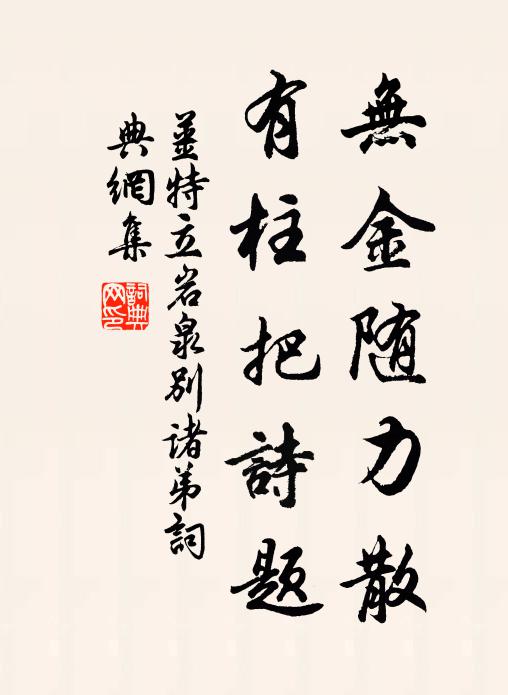 無金随力散
有柱把詩題
姜特立岩泉別诸弟詞
典網集
詞典网印